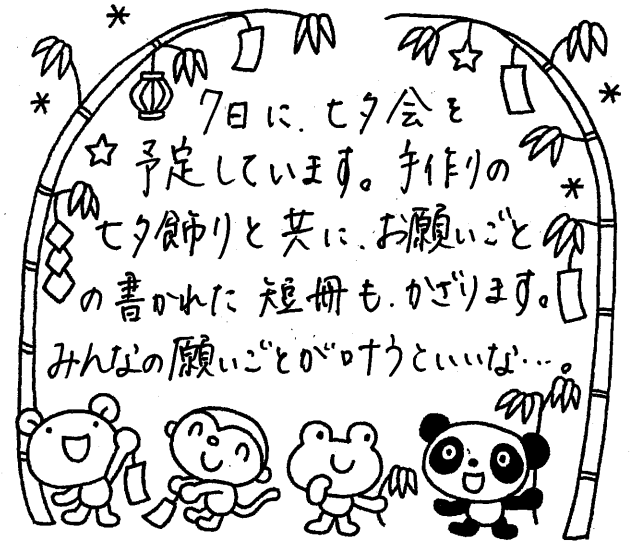 7日に、七夕会を
予定しています。手作りの
七夕飾りと共に、お願いごと
の書かれた短冊も、かざります。
みんなの願いごとが叶うといいな…。